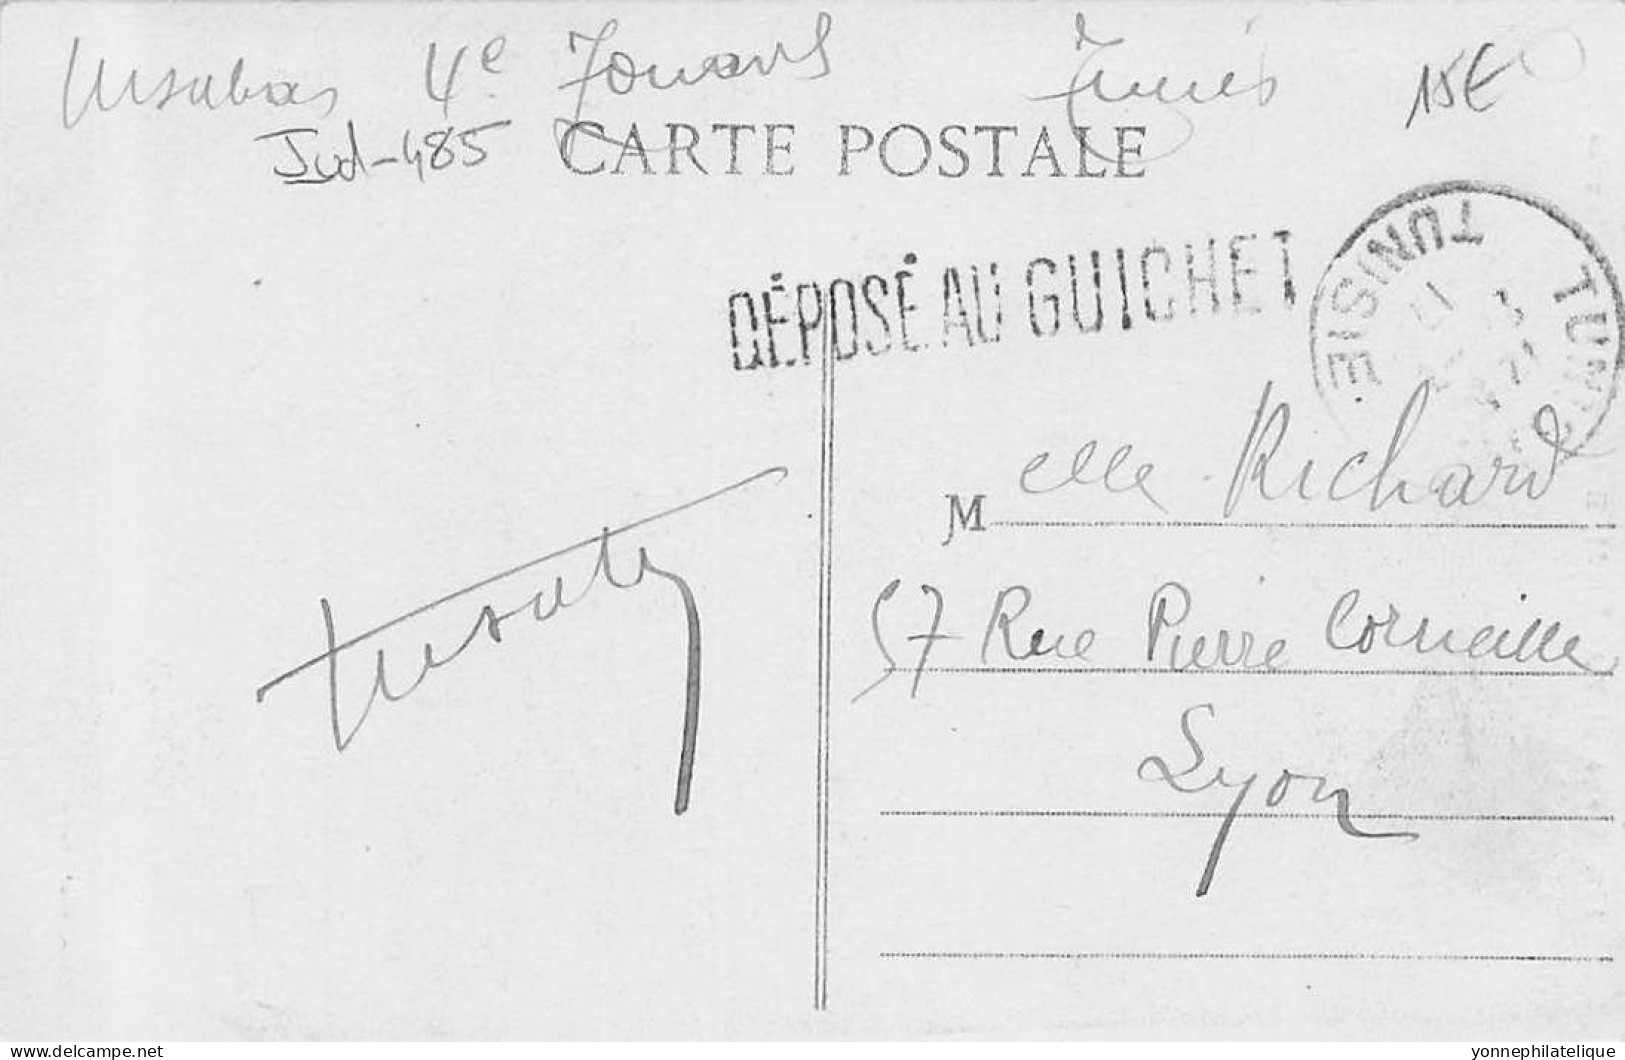 4e Zouaves Tunis 15€
Jud-485
CARTE POSTALE
DÉPOSÉ AU GUICHET
TUNIS TUNISIE
Melle Richard
57 Rue Pierre Corneille
Lyon
delcampe.net
yonnephilatelique